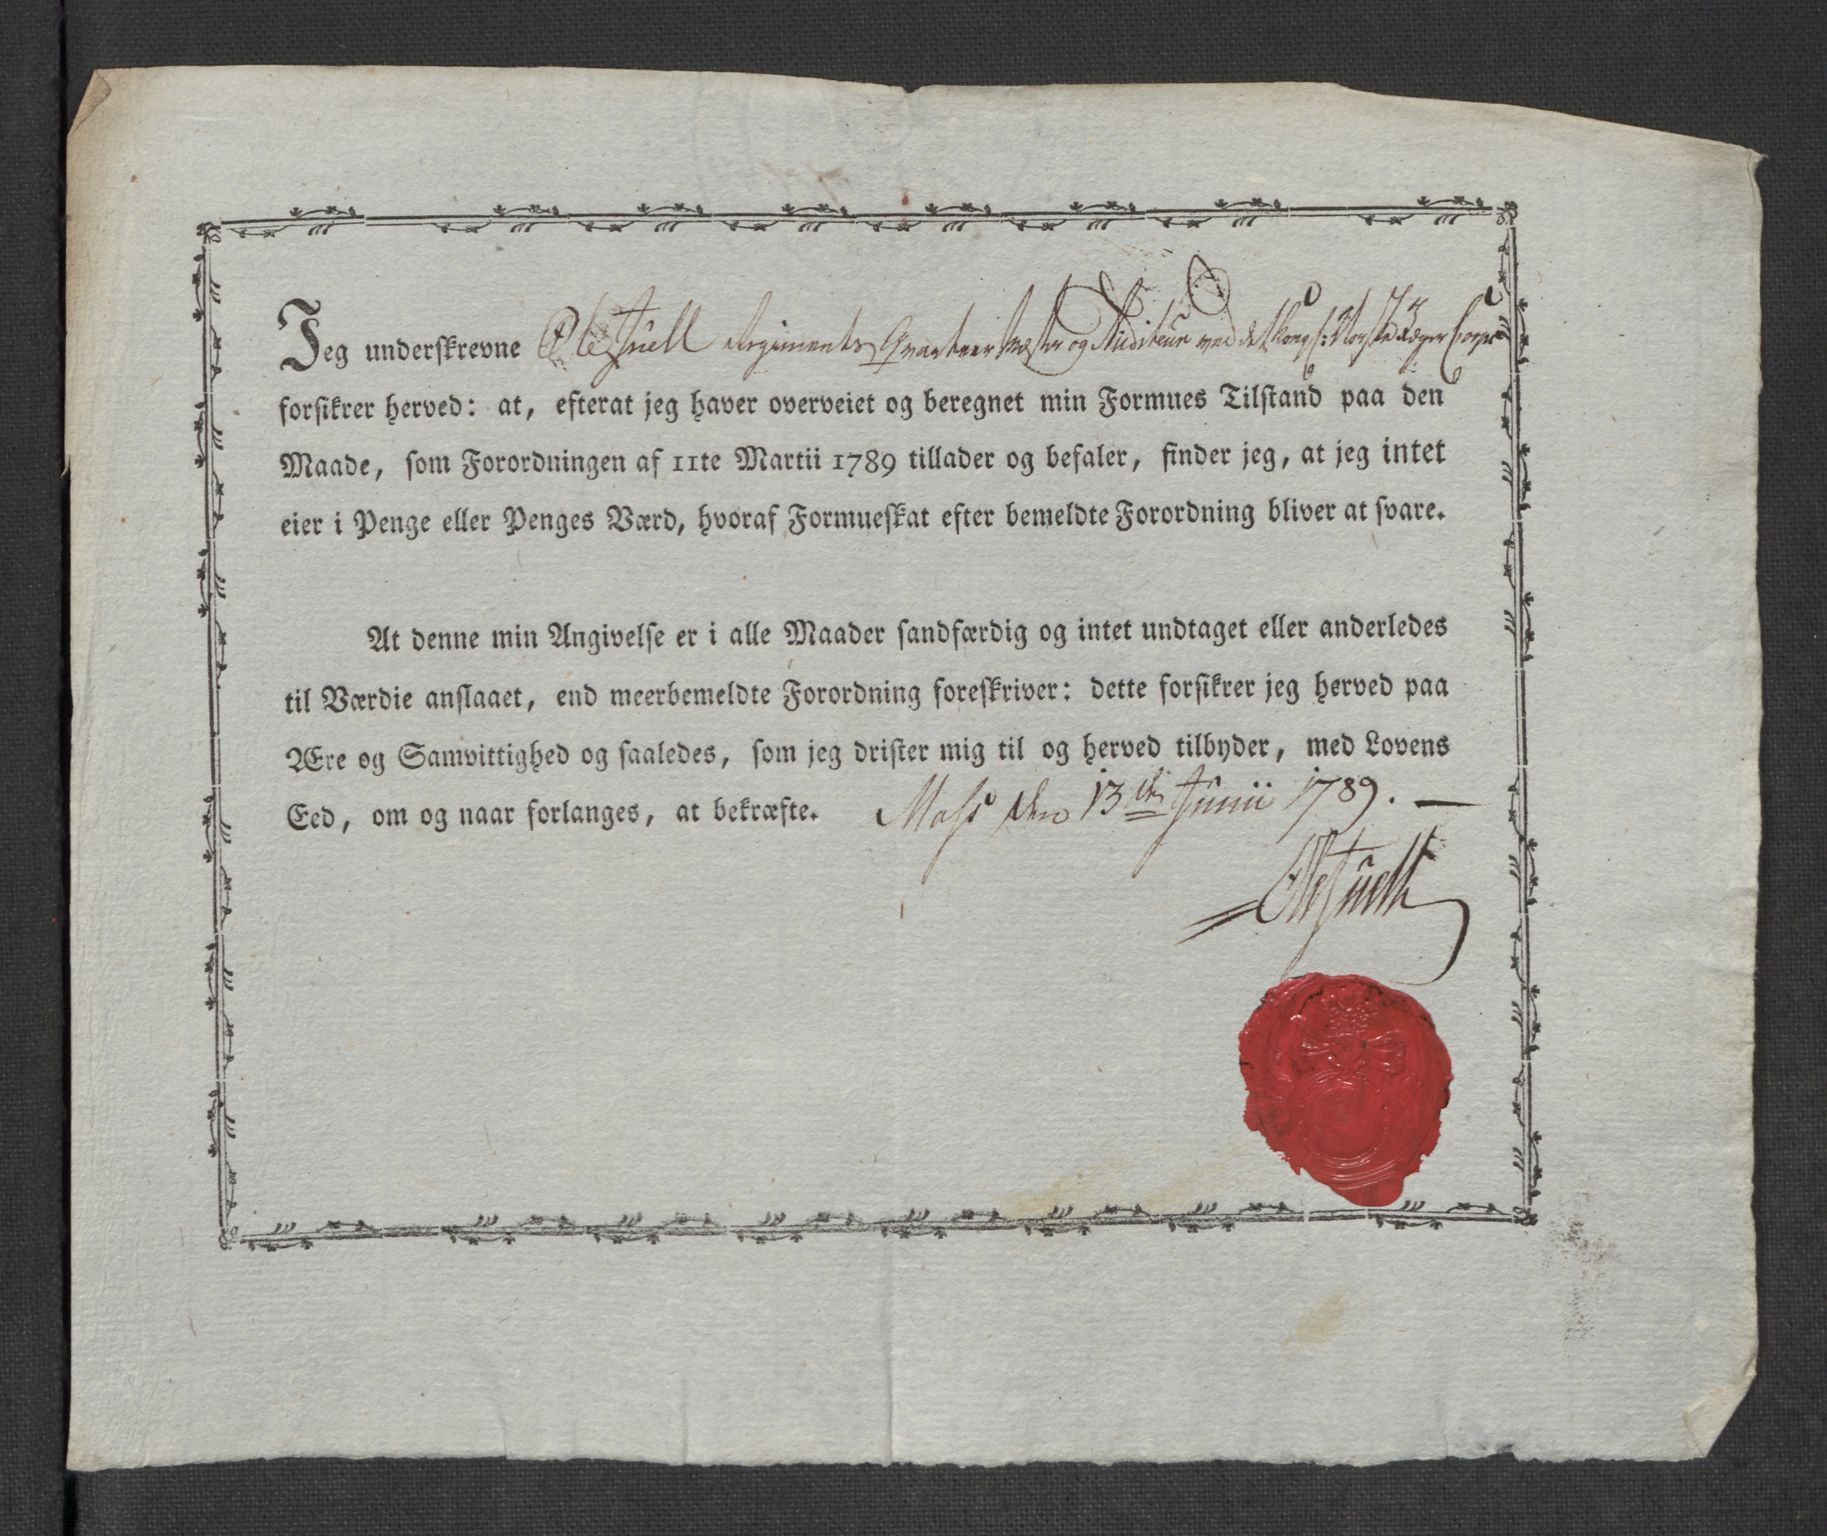 Jeg underskrevne Ole Juell Regiments Qvarteer Mæster og Auditeur ved det Kongl: Norske Jæger Corps
forsikrer herved: at, efterat jeg haver overveiet og beregnet min Formues Tilstand paa den
Maade, som Forordningen af 11te Martii 1789 tillader og befaler, finder jeg, at jeg intet
eier i Penge eller Penges Værd, hvoraf Formueskat efter bemeldte Forordning bliver at svare.
At denne min Angivelse er i alle Maader sandfærdig og intet undtaget eller anderledes
til Værdie anslaaet, end meerbemeldte Forordning foreskriver: dette forsikrer jeg herved paa
Ære og Samvittighed og saaledes, som jeg drister mig til og herved tilbyder, med Lovens
Eed, om og naar forlanges, at bekræfte. Moss den 13de Junii 1789.
Ole Juell